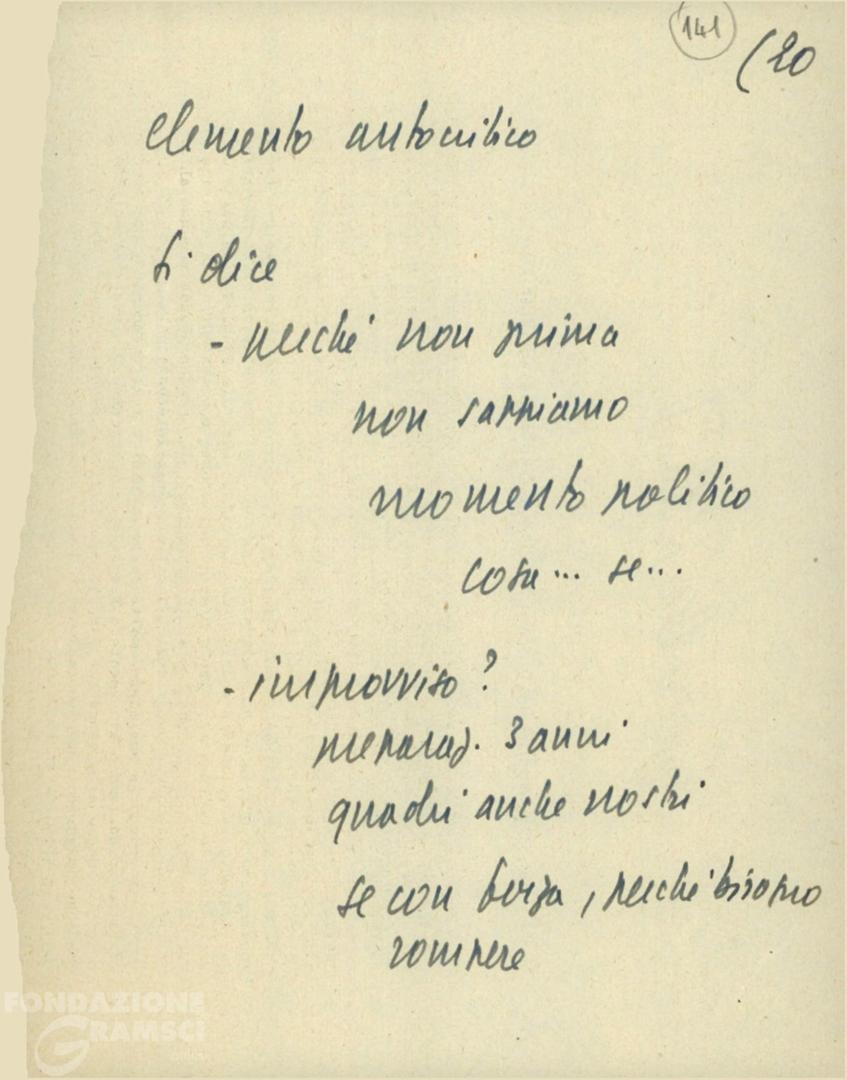 141
(20
elemento autocritico
si dice
- perché non prima
non sappiamo
momento politico
cosa... se...
- improvviso?
preparaz. 3 anni
quadri anche nostri
se con forza, perché bisogno
rompere
FONDAZIONE
GRAMSCI